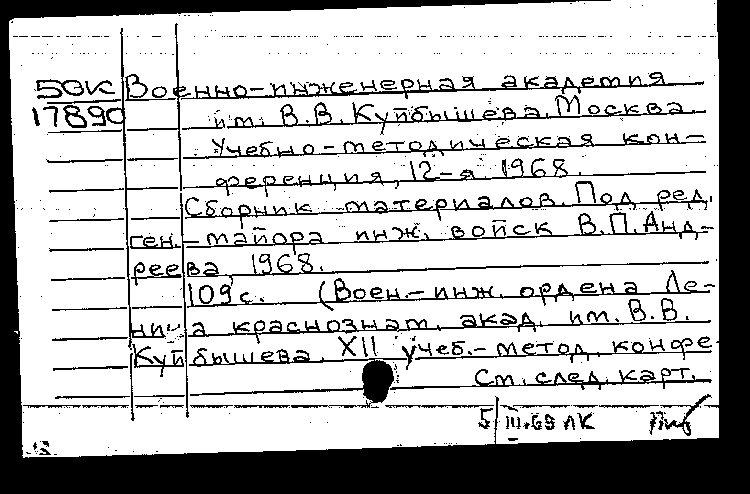 50К Военно-инженерная академия
17890 им. В.В. Куйбышева. Москва.
Учебно-методическая кон-
ференция, 12-я 1968.
Сборник материалов. Под ред.
ген.-майора инж. войск В.П. Анд-
реева, 1968.
109 с. (Воен.-инж. ордена Ле-
нина краснознам. акад. им. В.В.
Куйбышева. XII учеб.-метод. конфе
См. след. карт.
5/III.69 ЛК